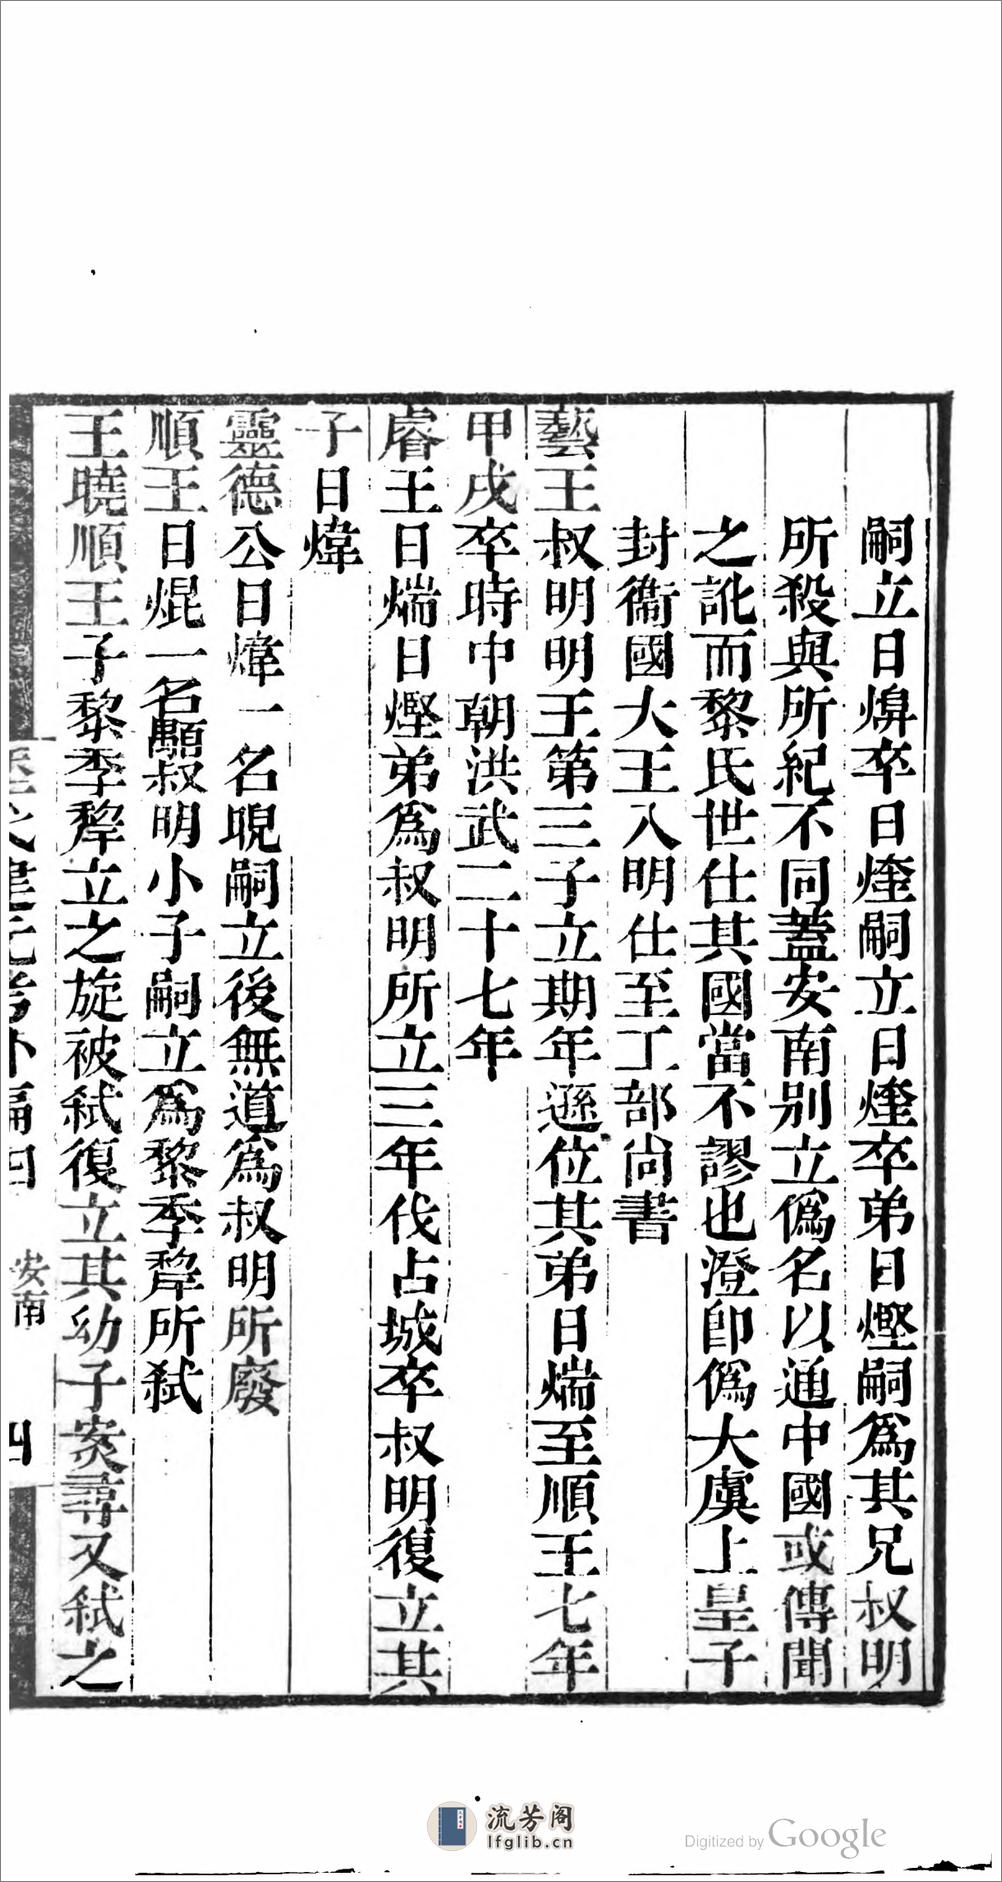 嗣立日㷈卒日㷡嗣立日㷡卒弟日熞嗣爲其兄叔明
所殺與所紀不同蓋安南别立僞名以通中國或傳聞
之訛而黎氏世仕其國當不謬也澄卽僞大虞上皇子
封衞國大王入明仕至工部尙書
藝王叔明明王第三子立期年遜位其弟日煓至順王七年
甲戌卒時中朝洪武二十七年
睿王日煓日熞弟爲叔明所立三年伐占城卒叔明復立其
子日煒
靈德公日煒一名晛嗣立後無道爲叔明所廢
順王日焜一名顒叔明小子嗣立爲黎季犛所弑
王曉順王子黎季犛立之旋被弑復立其幼子㝹尋又弑之
建元考外編四 安南 四
流芳阁
lfglib.cn
Digitized by Google